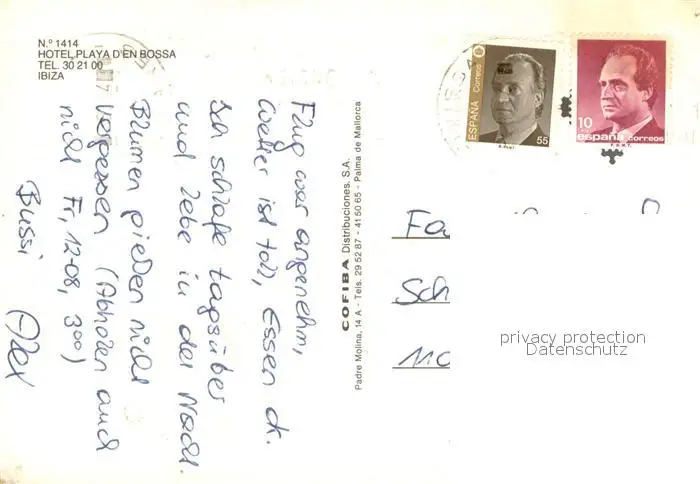 N.º 1414
HOTEL PLAYA D'EN BOSSA
TEL. 30 21 00
IBIZA
Flug war angenehm,
Wetter ist toll, Essen dt.
Ich schlafe tagsüber
und lebe in der Nacht.
Blumen gießen nicht
vergessen (Abholen auch
nicht Fr, 12-08, 3⁰⁰)
Bussi Alex
COFIBA Distribuciones. S.A.
Padre Molina, 14 A - Tels. 29 52 87 - 41 50 65 - Palma de Mallorca
ESPAÑA Correos
55
10
españa correos
F.N.M.T.
Fa
Sch
privacy protection
Datenschutz